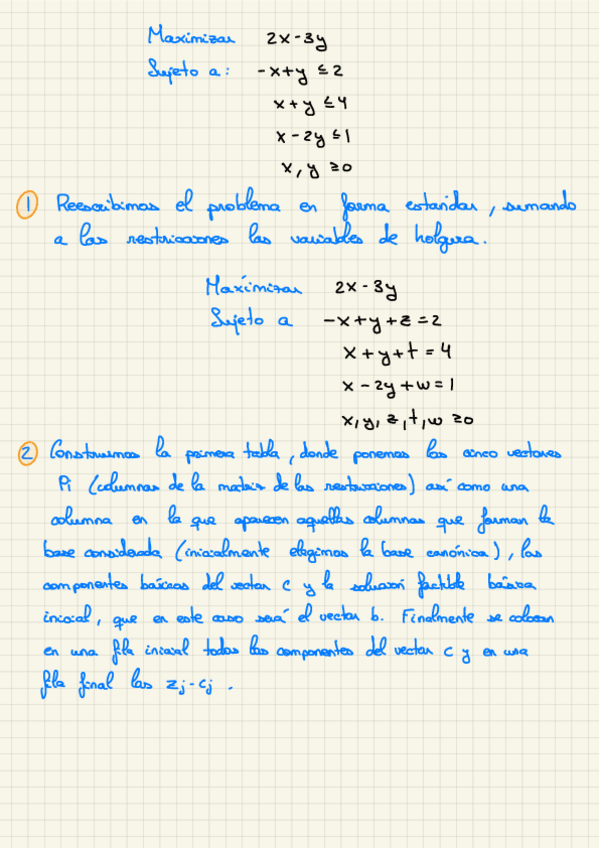 Maximizar 2x-3y
Sujeto a: -x+y ≤ 2
x+y ≤ 4
x-2y ≤ 1
x, y ≥0
1 Reescribimos el problema en forma estándar, sumando
a las restricciones las variables de holgura.
Maximizar 2x-3y
Sujeto a -x+y+z=2
x+y+t=4
x-2y+w=1
x, y, z, t, w ≥0
2 Construimos la primera tabla, donde ponemos los cinco vectores
Pi (columnas de la matriz de las restricciones) así como una
columna en la que aparecen aquellas columnas que forman la
base considerada (inicialmente elegimos la base canónica), las
componentes básicas del vector c y la solución factible básica
inicial, que en este caso será el vector b. Finalmente se colocan
en una fila inicial todas las componentes del vector c y en una
fila final las zj-cj.